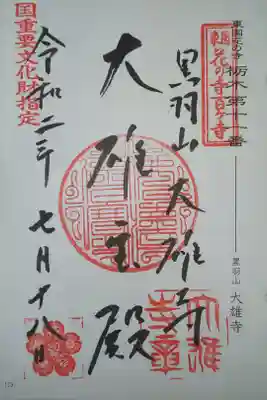 東国花の寺 栃木第十一番
黒羽山 大雄寺
東国花の寺百ヶ寺
黒羽山大雄寺
大雄宝殿
国重要文化財指定
令和二年七月十八日